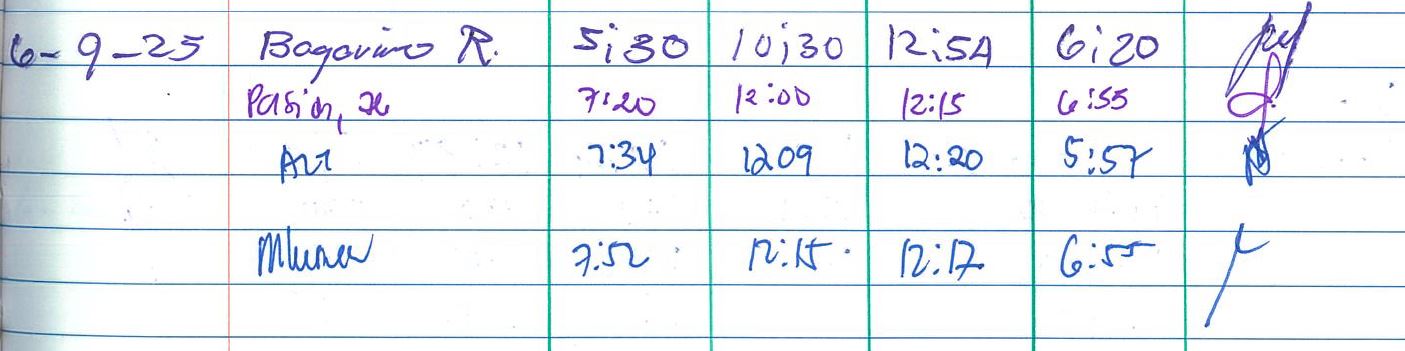 6-9-25 Bogavino R. 5:30 10:30 12:54 6:20
Pasion, 7:20 12:00 12:15 6:55
7:34 1209 12:20 5:57
7:52 12:15 12:17 6:55